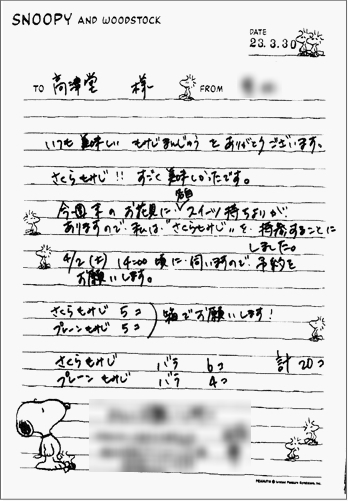 SNOOPY AND WOODSTOCK
DATE
23.3.30
TO 高津堂 様 FROM
いつも美味しいもみじまんじゅうをありがとうございます。
さくらもみじ!! すごく美味しかったです。
今週末のお花見に各自スイーツ持ちよりが
ありますので、私は"さくらもみじ"を持参することに
しました。
4/2(土) 14:00頃に伺いますので予約を
お願いします。
さくらもみじ 5コ
プレーンもみじ 5コ
箱でお願いします!
さくらもみじ バラ 6コ 計20コ
プレーンもみじ バラ 4コ